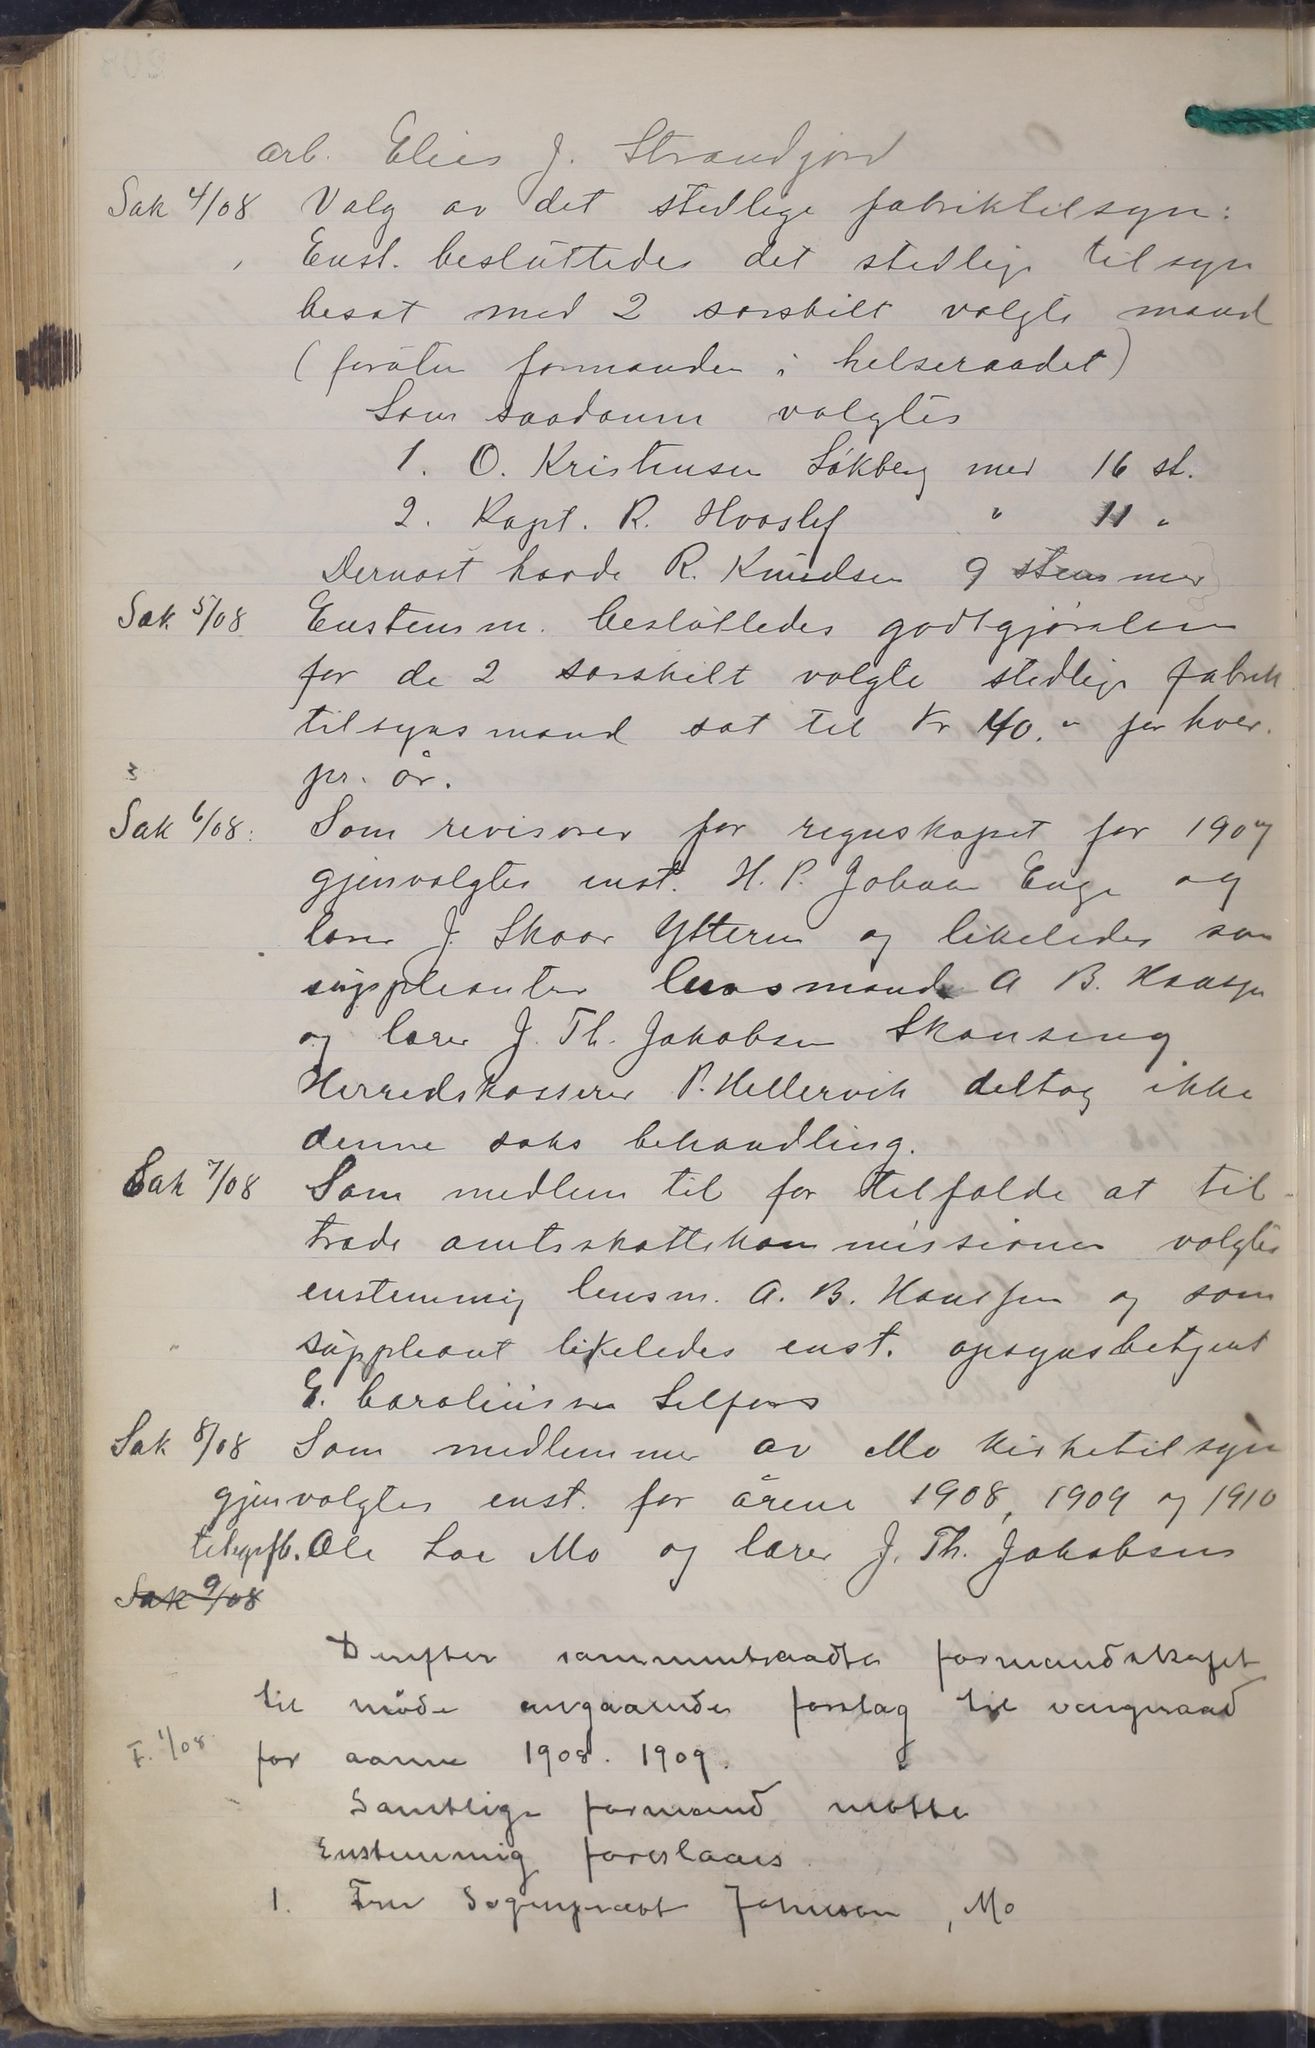 arb. Elias J. Strandjord
Sak 4/08 Valg av det stedlige fabriktilsyn:
Enst. besluttedes det stedlige tilsyn
besat med 2 særskilt valgte mænd
(foruten formanden i helseraadet)
Som saadanne valgtes
1. O. Kristensen Søkberg med 16 st.
2. Kapt. R. Hvoslef " 11 "
Dernæst havde R. Knudsen 9 stemmer
Sak 5/08 Enstemm. besluttedes godtgjørelsen
for de 2 særskilt valgte stedlige fabrik
tilsynsmænd sat til Kr 40.- for hver
pr. år.
Sak 6/08: Som revisorer for regnskapet for 1907
gjenvalgtes enst. H. P. Johan Enge og
lærer J. Skaar Ytteren og likeledes som
suppleanter lensmand A B. Hansen
og lærer J. Th. Jakobsen Skanseng
Herredskasserer P. Hellervik deltog ikke
denne saks behandling.
Sak 7/08 Som medlem til for tilfælde at til-
træde amtsskattekommissionen valgtes
enstemmig lensm. A. B. Hansen og som
suppleant likeledes enst. opsynsbetjent
E. Caroliussen Selfors
Sak 8/08 Som medlemmer av Mo kirketilsyn
gjenvalgtes enst. for årene 1908, 1909 og 1910
telegrfb. Ole Loe Mo og lærer J. Th. Jakobsen
Sak 9/08
Derefter sammentraadte formandskapet
til møde angaaende forslag til vergeraad
F. 1/08 for aarene 1908. 1909.
Samtlige formænd møtte
Enstemmig foreslaaes
1. Fru Sogneprest Johnson, Mo